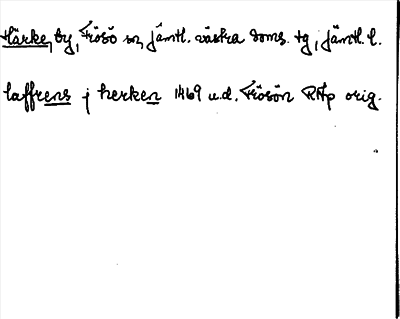 Härke, by, Frösö sn, Jämtl. västra doms. tg, Jämtl. l.
laffrens j herken 1469 u.d. Frösön RAp orig.